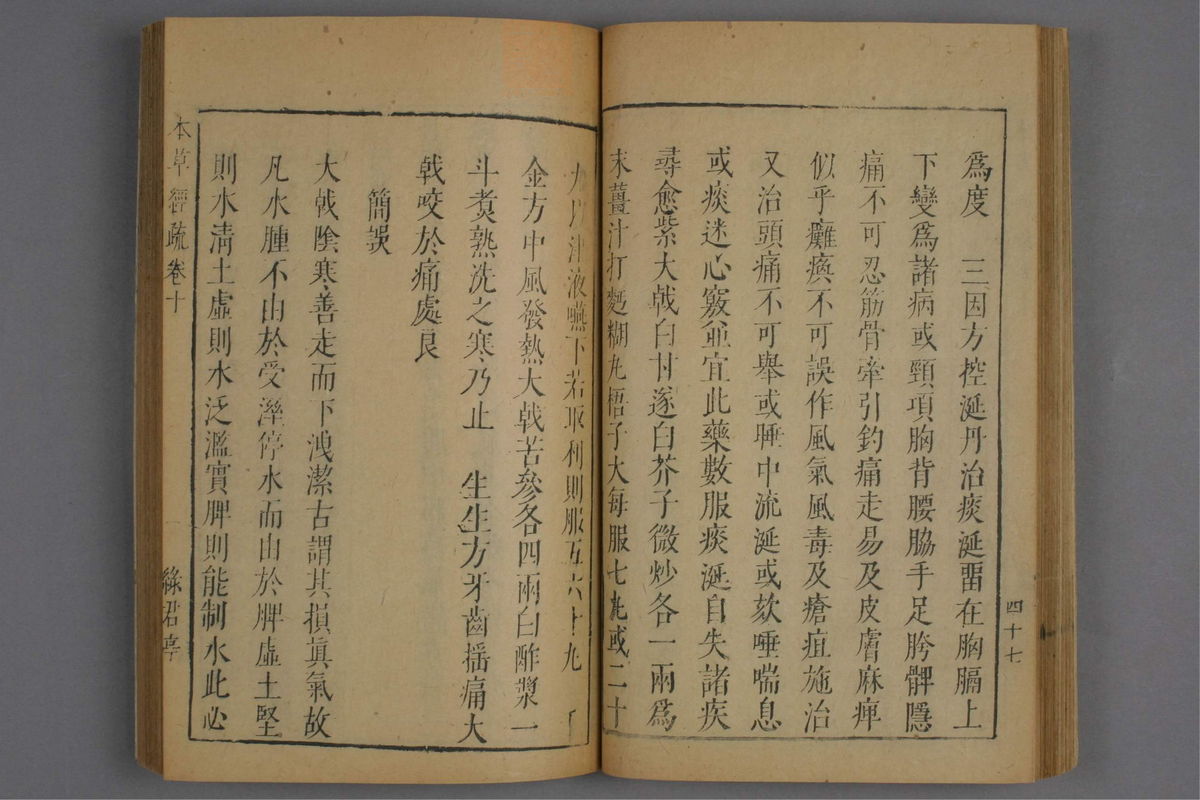 爲度　三因方控涎丹治痰涎畱在胸膈上
下變爲諸病或頸項胸背腰脇手足胯髀隱
痛不可忍筋骨牽引釣痛走易及皮膚麻痺
似乎癱瘓不可誤作風氣風毒及瘡疽施治
又治頭痛不可舉或睡中流涎或欬唾喘息
或痰迷心竅並宜此藥數服痰涎自失諸疾
尋愈紫大戟白甘遂白芥子微炒各一兩爲
末薑汁打麪糊丸梧子大每服七丸或二十
四十七
丸以津液嚥下若取利則服五六十丸
金方中風發熱大戟苦參各四兩白酢漿一
斗煑熟洗之寒乃止　生生方牙齒搖痛大
戟咬於痛處良
簡誤
大戟陰寒善走而下洩潔古謂其損眞氣故
凡水腫不由於受溼停水而由於脾虛土堅
則水淸土虛則水泛濫實脾則能制水此必
本草經疏卷十
綠君亭